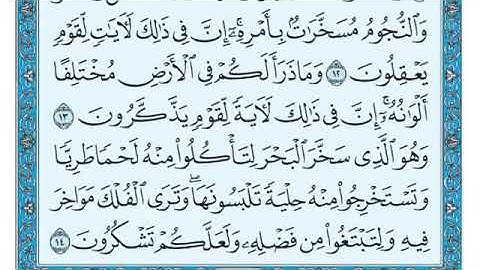 وَٱلنُّجُومُ مُسَخَّرَٰتُۢ بِأَمْرِهِۦٓ إِنَّ فِى ذَٰلِكَ لَءَايَٰتٍ لِّقَوْمٍ
يَعْقِلُونَ ١٢ وَمَا ذَرَأَ لَكُمْ فِى ٱلْأَرْضِ مُخْتَلِفًا
أَلْوَٰنُهُۥٓ إِنَّ فِى ذَٰلِكَ لَءَايَةً لِّقَوْمٍ يَذَّكَّرُونَ ١٣
وَهُوَ ٱلَّذِى سَخَّرَ ٱلْبَحْرَ لِتَأْكُلُوا۟ مِنْهُ لَحْمًا طَرِيًّا
وَتَسْتَخْرِجُوا۟ مِنْهُ حِلْيَةً تَلْبَسُونَهَا وَتَرَى ٱلْفُلْكَ مَوَاخِرَ
فِيهِ وَلِتَبْتَغُوا۟ مِن فَضْلِهِۦ وَلَعَلَّكُمْ تَشْكُرُونَ ١٤